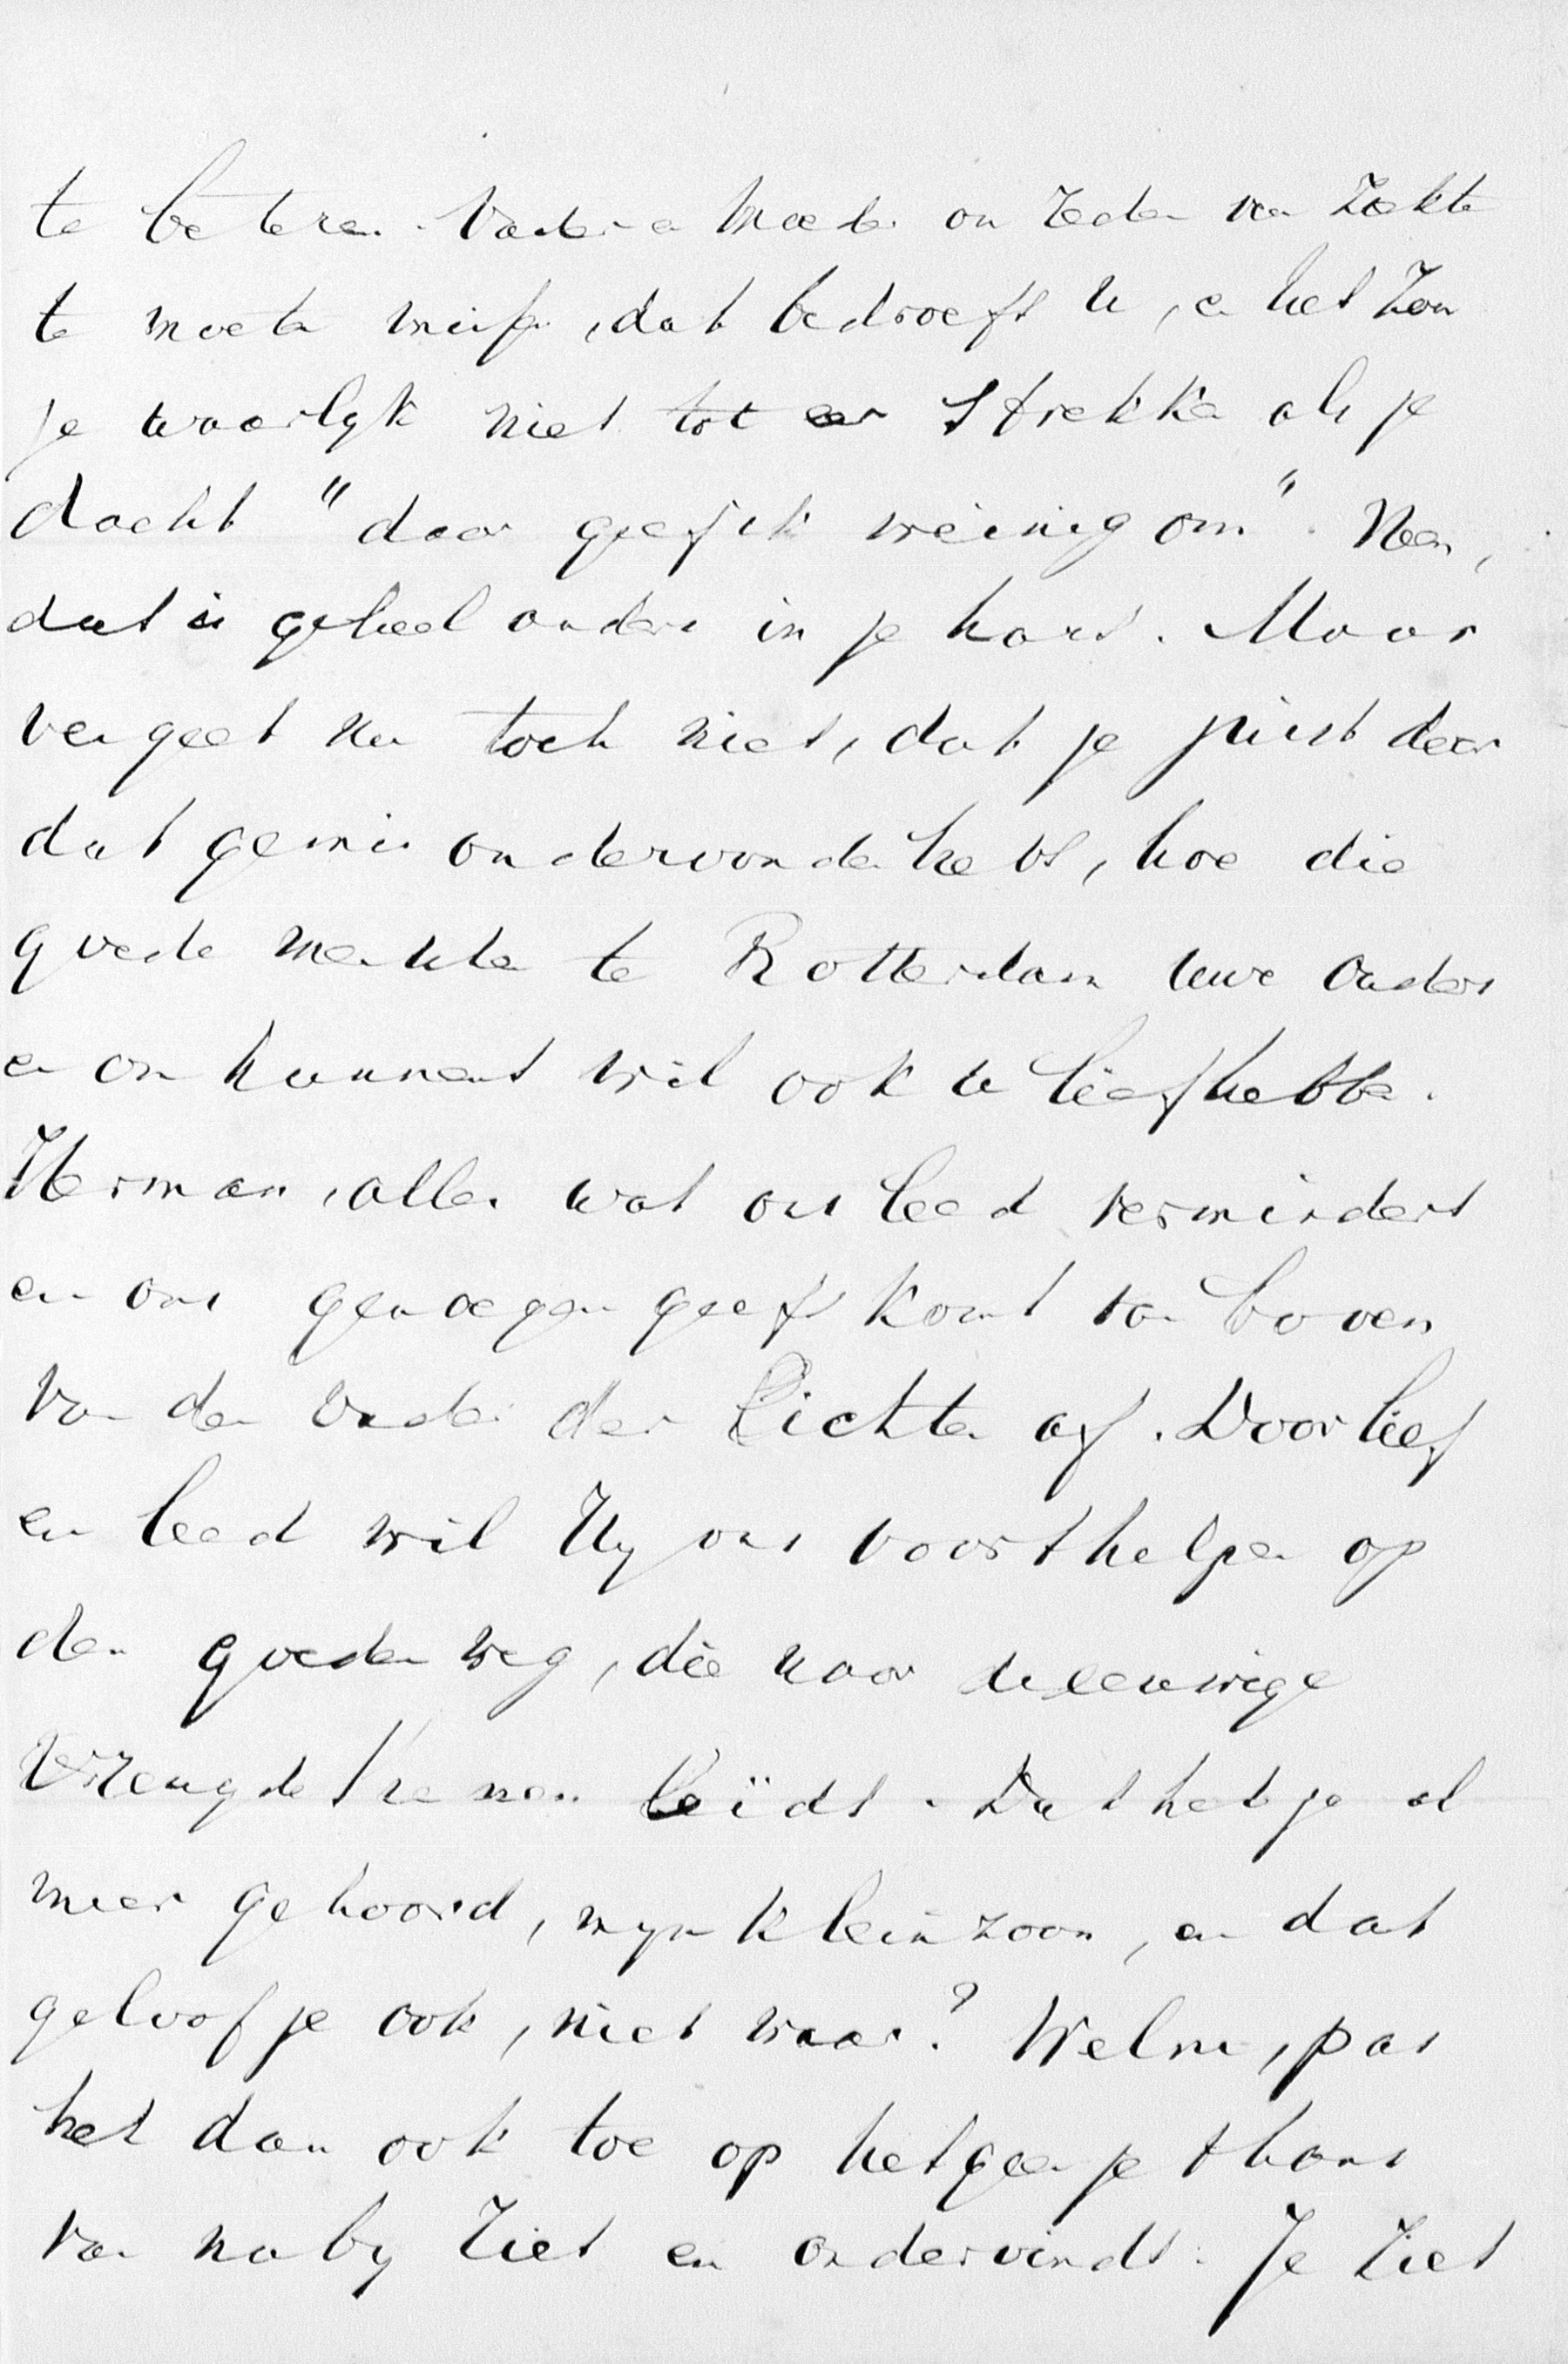 te beteren. Vader en Moeder om reden van ziekte
te moeten missen, dat bedroeft u, en het zou
je waarlyk niet tot eer strekken als je
dacht "daar geef ik weinig om". Neen,
dat is geheel anders in je hart. Maar
vergeet nu toch niet, dat je juist door
dat gemis ondervonden hebt, hoe die
goede menschen te Rotterdam uwe Ouders
en om hunnent wil ook u liefhebben.
Herman, alles wat ons leed vermindert
en ons genoegen geeft komt van boven
van den Vader der Lichten af. Door lief
en leed wil Hy ons voorthelpen op
den goeden weg, die naar de eeuwige
Vreugde henen leïdt. Dat heb je al
meer gehoord, myn kleinzoon, en dat
geloof je ook, niet waar? Welnu, pas
het dan ook toe op hetgeen je thans
van naby ziet en ondervindt. Je ziet